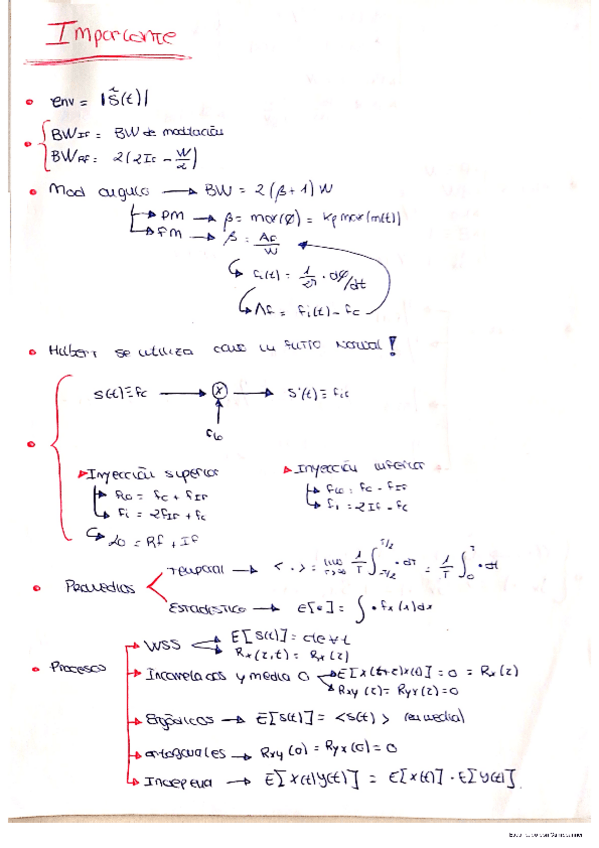 Importante
• env = |s̃(t)|
• { BW_IF = BW de modulación
BW_RF = 2(2IF - W/2)
• Mod angular → BW = 2(β+1)W
→ PM → β = max(φ) = Kp max(m(t))
→ FM → β = Δf/W
fi(t) = 1/2π · dφ/dt
Δf = fi(t) - fc
• Hilbert se utiliza como un filtro normal!
s(t) ≡ fc → ⊗ → s'(t) ≡ fic
flo
▸ Inyección superior
▸ Inyección inferior
flo = fc + fIF
flo = fc - fIF
fi = 2fIF + fc
fi = 2IF - fc
Lo = RF + IF
• Promedios
Temporal → < · > = lim T→∞ 1/T ∫_{-T/2}^{T/2} · dt = 1/T ∫_0^T · dt
Estadístico → E[·] = ∫ · fx(x)dx
• Procesos
→ WSS → E[s(t)] = cte ∀ t
Rx(z,t) = Rx(z)
→ Incorrelados y media 0 → E[x(t+z)x(t)] = 0 = Rx(z)
Rxy(z) = Ryx(z) = 0
→ Ergódicos → E[s(t)] = <s(t)>
→ ortogonales → Rxy(0) = Ryx(0) = 0
→ Indepen → E[x(t)y(t)] = E[x(t)] · E[y(t)]